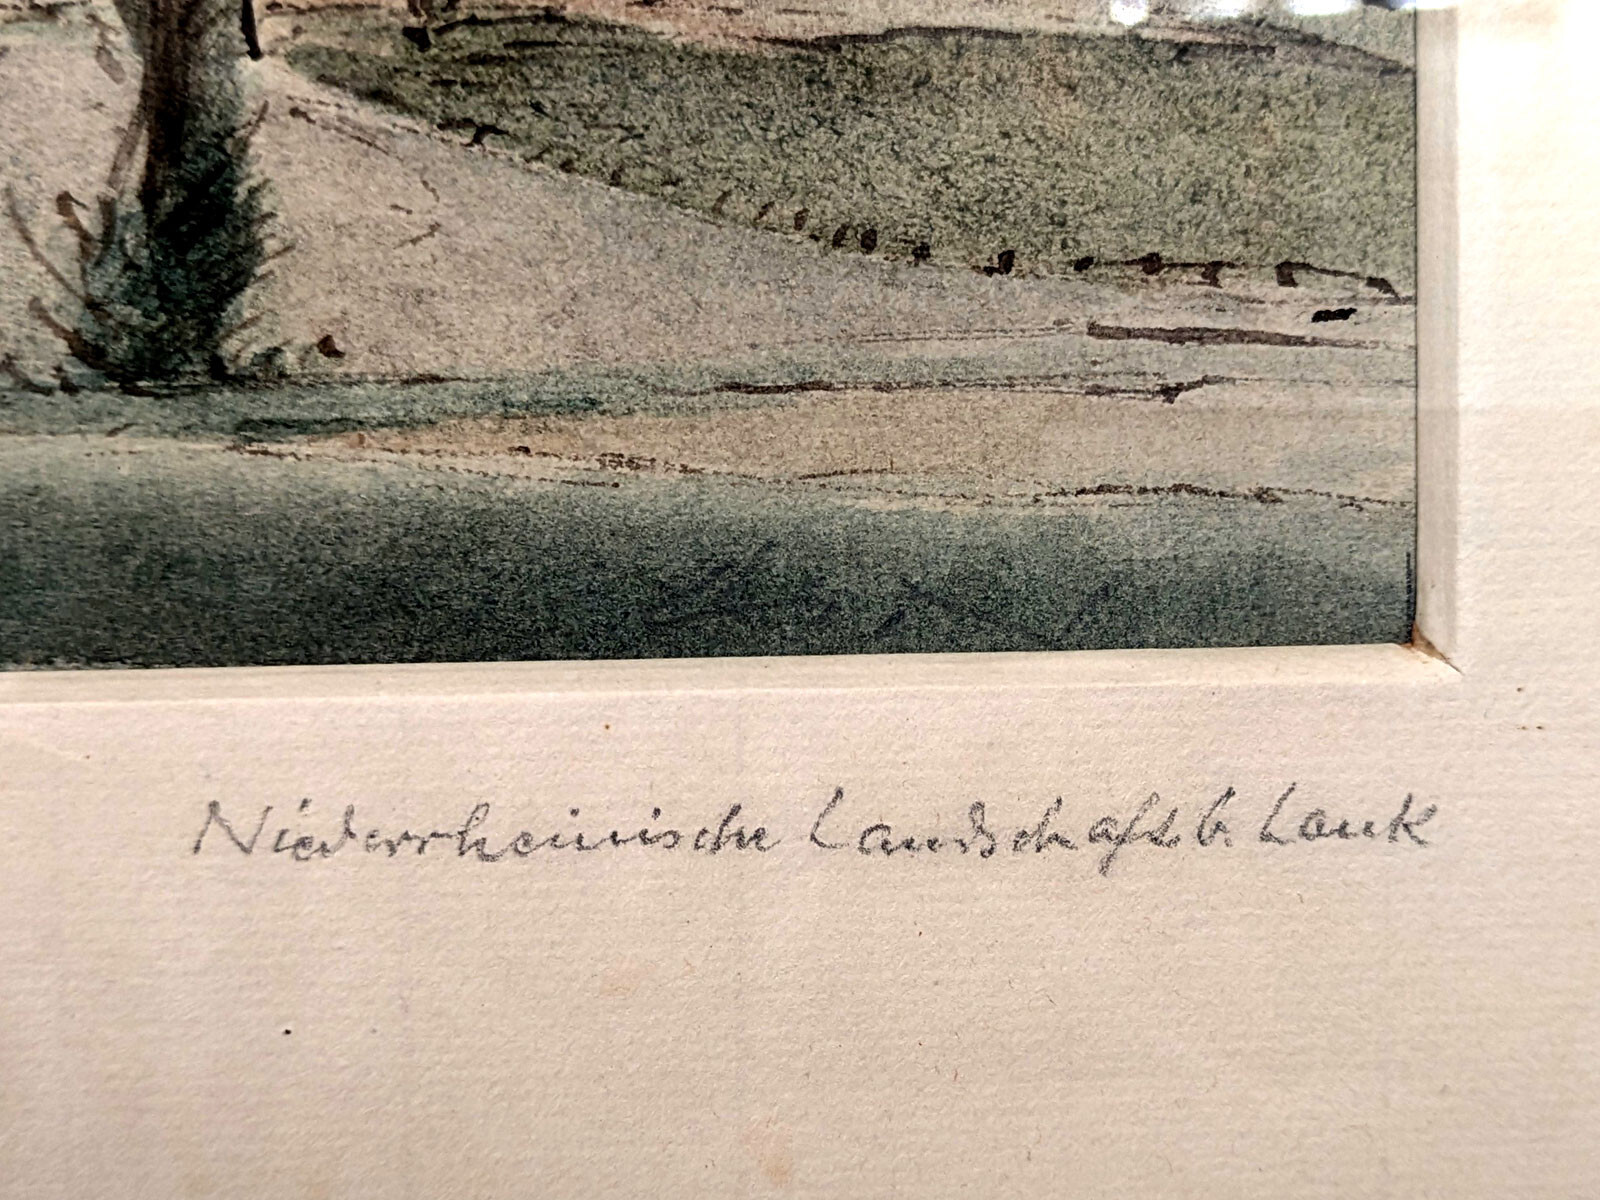 Niederrheinische Landschaft b. Lank